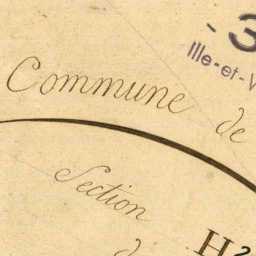 - 3
Ille-et-V
Commune de
Section
d
H